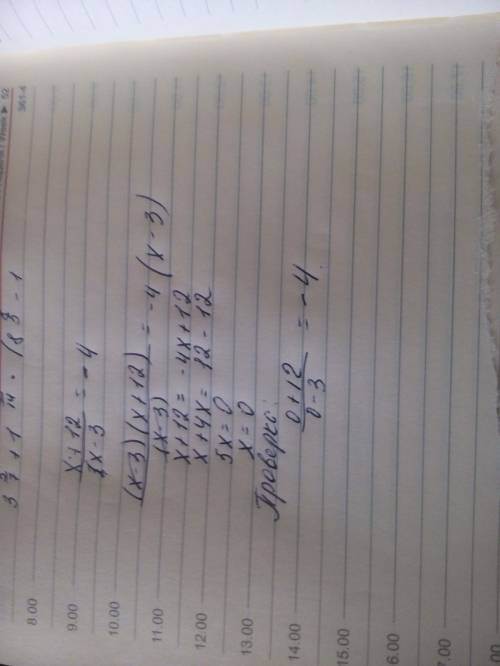 3 2/7 + 1 1/14 · (8 3/4 - 1
(x+12)/(x-3) = -4
((x-3)(x+12))/(x-3) = -4(x-3)
x+12 = -4x+12
x+4x = 12-12
5x=0
x=0
Проверка:
(0+12)/(0-3) = -4
Week ▶ 52
361-4
8.00
9.00
10.00
11.00
12.00
13.00
14.00
15.00
6.00
7.00